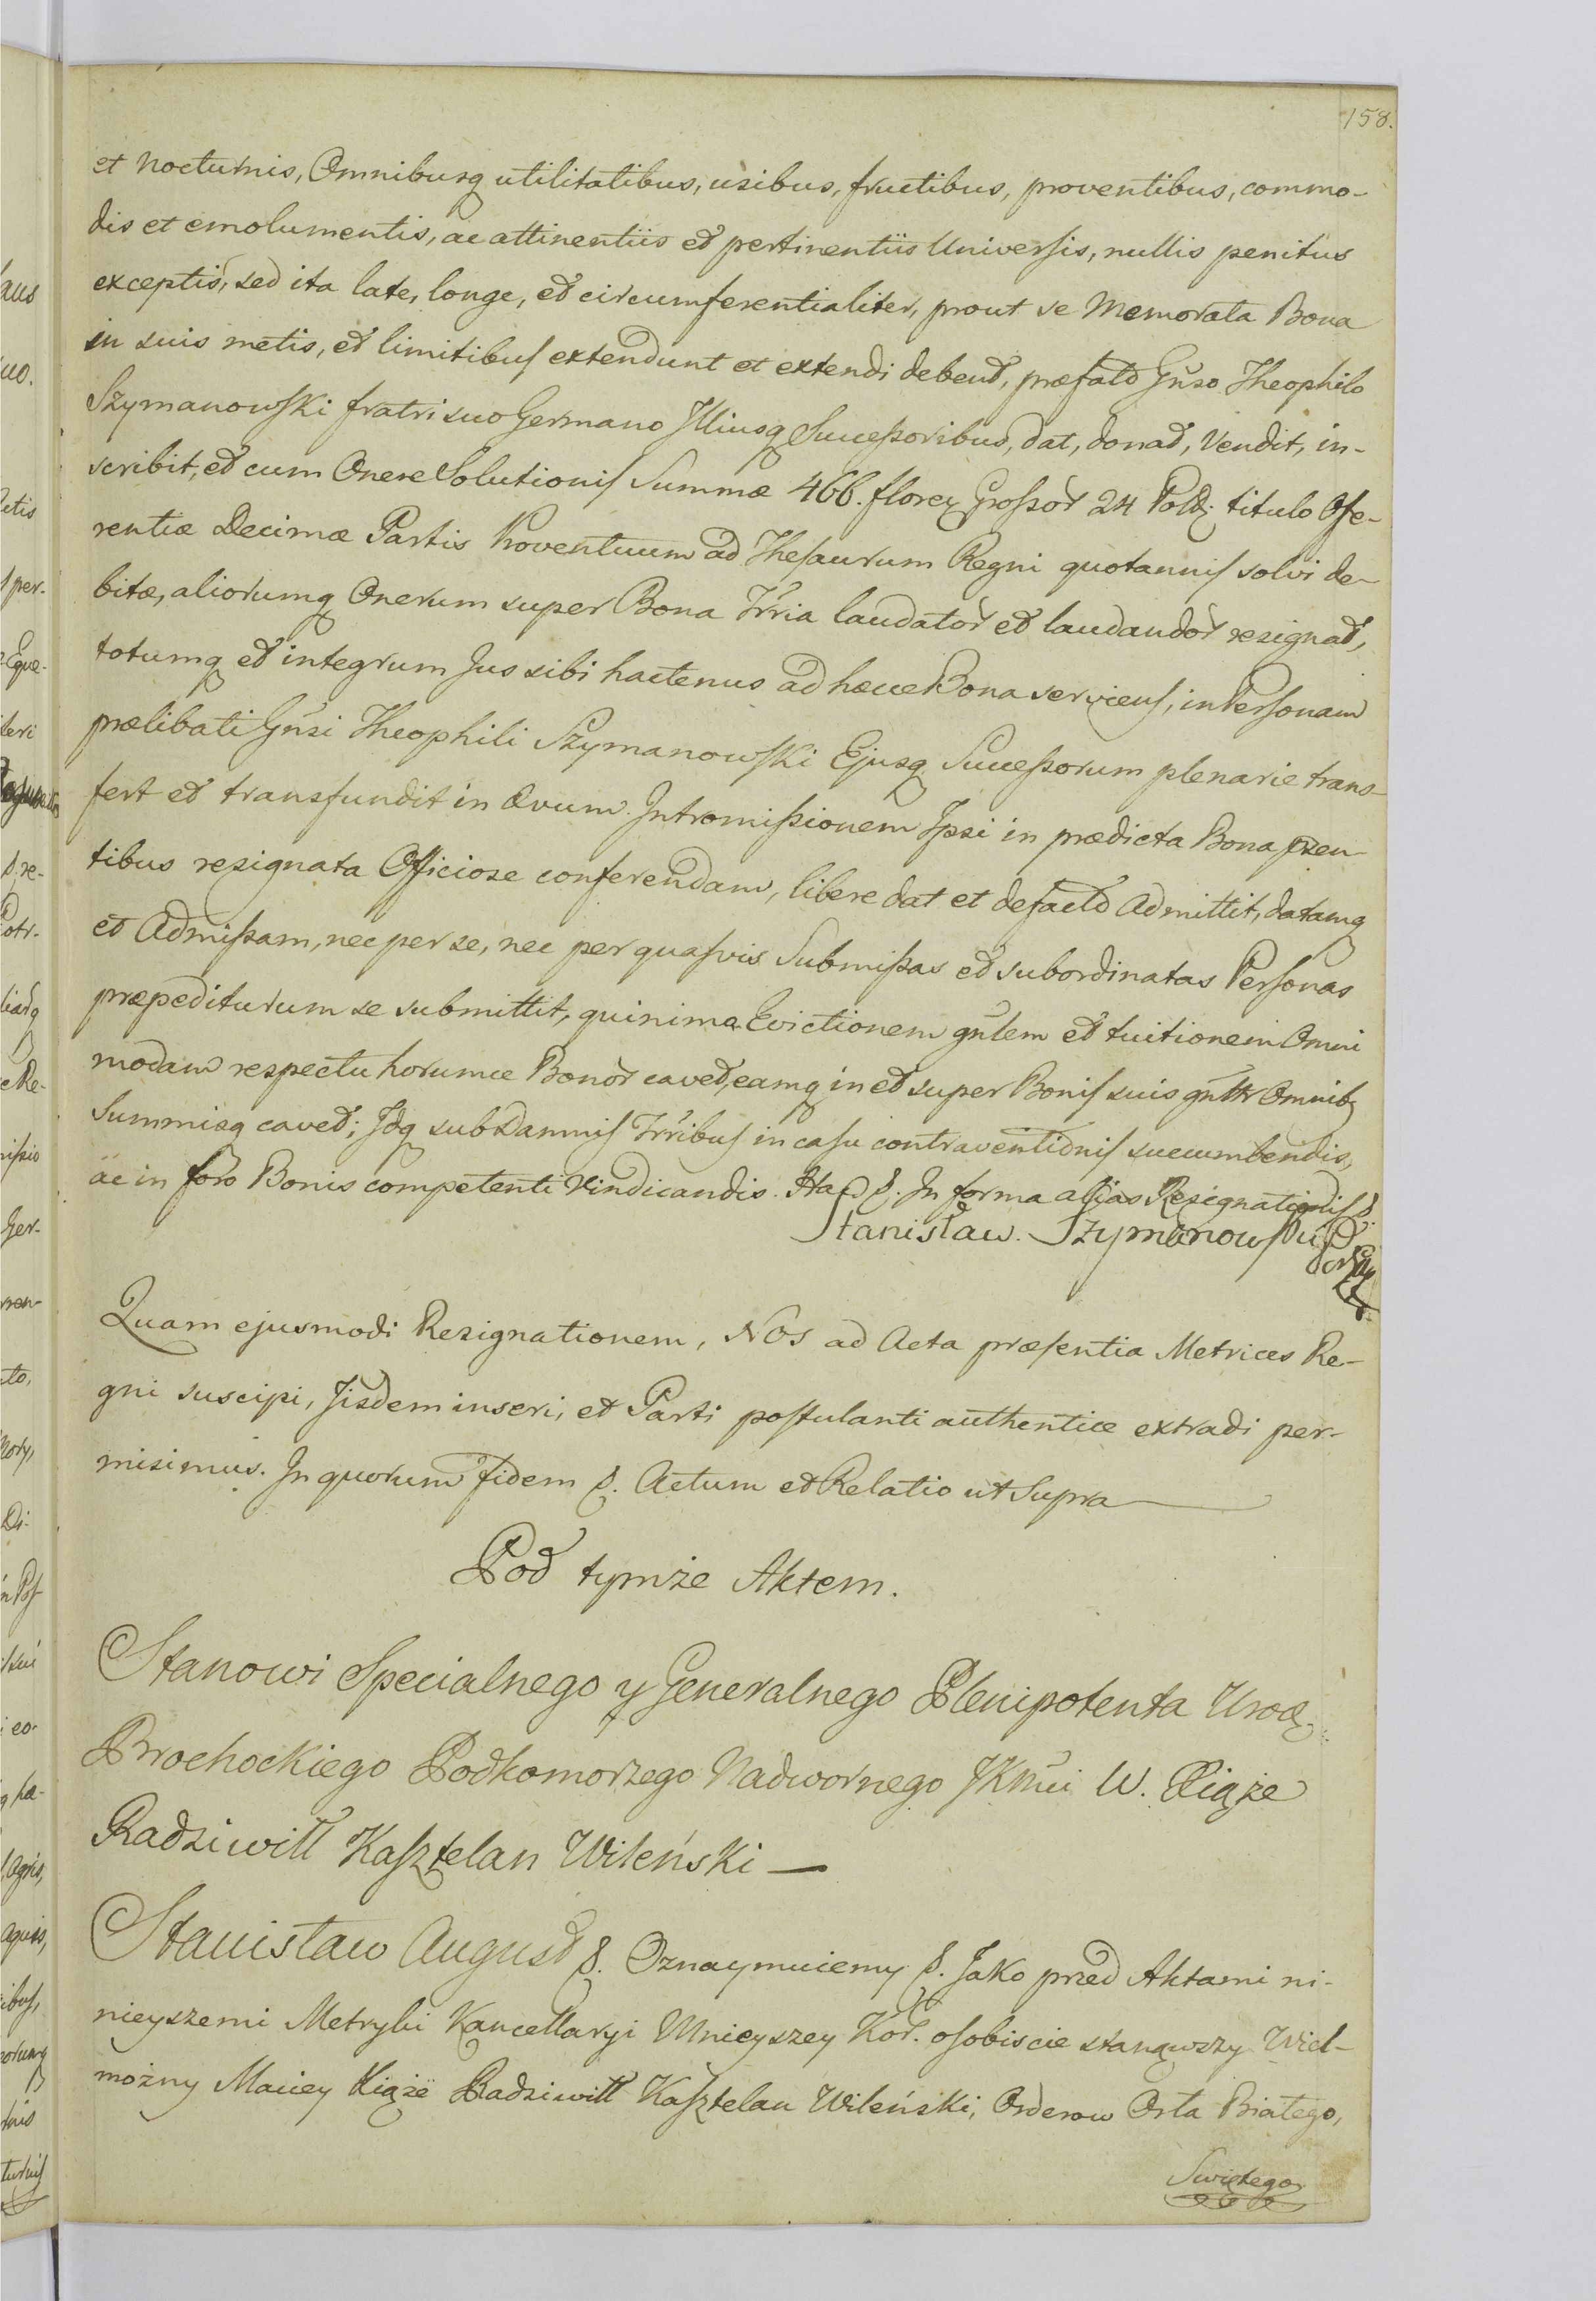 158.
et nocturnis, Omnibusq utilitatibus, usibus, fructibus, proventibus, commo-
dis et emolumentis, ac attinentiis et pertinentiis Universis, nullis penitus
exceptis, sed ita late, longe, et circumferentialiter, prout se Memorata Bona
in suis metis, et limitibus extendunt et extendi debent, præfato Gn̄so Theophilo
Szymanowski fratri suo Germano Illiusq Successoribus, dat, donat, vendit, in-
scribit, et cum Onere Solutionis Summæ 466. floren Grossor 24 Pold titulo Offe-
rentiæ Decimæ Partis Proventuum ad Thesaurum Regni quotannis solvi de-
bitæ, aliorumq Onerum super Bona Tr̄ria laudator et laudandor resignat,
totumq et integrum Jus sibi hactenus ad hæcce Bona serviens, in Personam
prælibati Gn̄si Theophili Szymanowski Ejusq Successorum plenarie trans-
fert et transfundit in ævum. Intromissionem Ipsi in prædicta Bona præn-
tibus resignata Officiose conferendam, libere dat et defacto Admittit, datamq
et Admissam, nec per se, nec per quasvis Submissas et subordinatas Personas
præpediturum se submittit, quinimo Evictionem gn̄lem et tuitionem Omni
modam respectu horumce Bonor cavet, eamq in et super Bonis suis gn̄ltr Omnib
Summisq cavet; Idq sub Damnis Tr̄ribus in casu contraventionis succumbendis,
ac in foro Bonis competenti Vindicandis. Ha. In forma alias Resignationis
Stanisław. Szymanowski
Quam ejusmodi Resignationem, NOS ad Acta præsentia Metrices Re-
gni suscipi, Iisdem inseri, et Parti postulanti authentice extradi per-
misimus. In quorum fidem &. Actum et Relatio ut Supra
Pod tymże Aktem.
Stanowi Specialnego y Generalnego Plenipotenta Urodz.
Brochockiego Podkomorzego Nadwornego JKMci W. Xiąże
Radziwiłł Kasztelan Wileński —
Stanisław August &. Oznaymuiemy &. Jako przed Aktami ni-
nieyszemi Metryki Kancellaryi Mnieyszey Kor. osobiscie stanąwszy Wiel-
możny Maciey Xiąże Radziwiłł Kasztelan Wileński, Orderow Orła Białego,
Swiętego